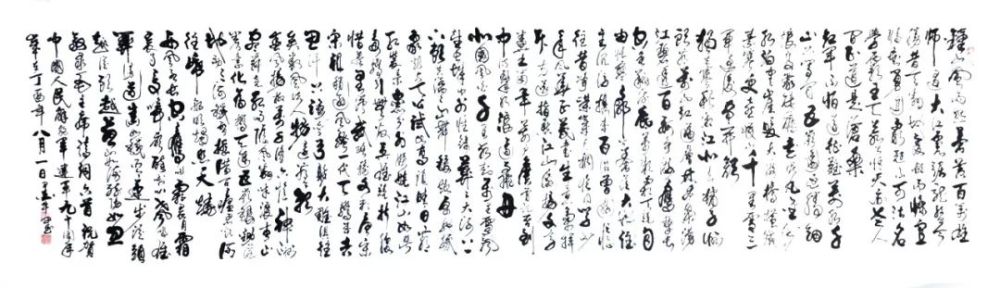 钟山风雨起苍黄百万雄
师过大江虎踞龙盘今
胜昔天翻地覆慨而慷宜
将剩勇追穷寇不可沽名
学霸王天若有情天亦老人
间正道是沧桑
红军不怕远征难万水千
山只等闲五岭逶迤腾细
浪乌蒙磅礴走泥丸金沙
水拍云崖暖大渡桥横铁索
寒更喜岷山千里雪三
军过后尽开颜
独立寒秋湘江北去橘子洲
头看万山红遍层林尽染漫
江碧透百舸争流鹰击长
空鱼翔浅底万类霜天竞自
由怅寥廓问苍茫大地谁
主沉浮携来百侣曾游忆
往昔峥嵘岁月稠恰同学少
年风华正茂书生意气挥
斥方遒指点江山激扬文字
粪土当年万户侯曾记否到
中流击水浪遏飞舟
北国风光千里冰封万里雪飘
望长城内外惟余莽莽大河上下
顿失滔滔山舞银蛇原驰蜡
象欲与天公试比高须晴日看
红装素裹分外妖娆江山如此
多娇引无数英雄竞折腰
惜秦皇汉武略输文采唐宗
宋祖稍逊风骚一代天骄成吉
思汗只识弯弓射大雕俱往
矣数风流人物还看今朝
春风杨柳万千条六亿神州
尽舜尧红雨随心翻作浪青山
着意化为桥天连五岭银锄落
地动三河铁臂摇借问瘟君欲何
往纸船明烛照天烧
西风烈长空雁叫霜晨月霜
晨月马蹄声碎喇叭声咽雄
关漫道真如铁而今迈步从头
越从头越苍山如海残阳如血
敬录毛主席诗词六首祝贺
中国人民解放军建军九十周年
岁在丁酉年八月一日